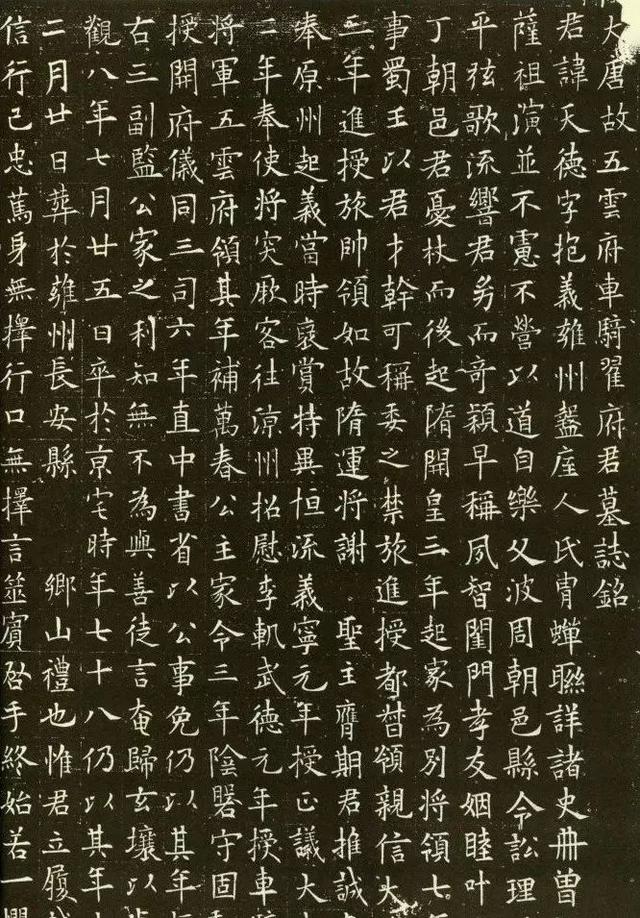 大唐故五雲府車騎翟府君墓誌銘
君諱天德字抱義雍州盩厔人氏冑蟬聯詳諸史冊曾
薩祖演並不憲不營以道自樂父波周朝邑縣令訟理
平弦歌流響君劣而奇穎早稱夙智閨門孝友姻睦叶
丁朝邑君憂杖而後起隋開皇三年起家為別將領七
事蜀王以君才幹可稱委之禁旅進授都督領親信大
二年進授旅帥領如故隋運將謝 聖主膺期君推誠
奉原州起義當時裒賞特異恒流義寧元年授正議大
二年奉使將突厥客往涼州招慰李軌武德元年授車
將軍五雲府領其年補萬春公主家令三年陰磐守固
授開府儀同三司六年直中書省以公事免仍以其年
右三副監公家之利知無不為與善徒言奄歸玄壤以
觀八年七月廿五日卒於京宅時年七十八仍以其年
二月廿日葬於雍州長安縣 鄉山禮也惟君立履
信行己忠篤身無擇行口無擇言筮賓啓手終始若一